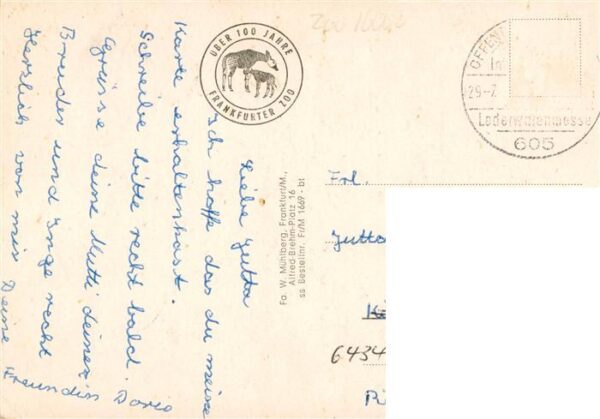 Liebe Jutta
Ich hoffe das du meine
Karte erhaltenhast.
Schreibe bitte recht bald.
Grüsse deine Mutti deinen
Bruder und Inge recht
Herzlich von mir Deine
Freundin Doris
ÜBER 100 JAHRE
FRANKFURTER ZOO
Fa. W. Mühlberg, Frankfurt/M.,
Alfred-Brehm-Platz 16
ss Bestellnr. Fr/M 1669 - bt
OFFEN
In
29-7
Lederwarenmesse
605
Frl.
Jutta
6434